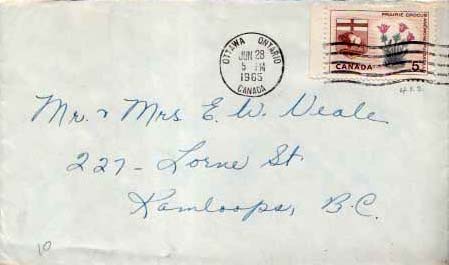 OTTAWA ONTARIO
JUN 28
5 PM
1965
CANADA
PRAIRIE CROCUS
CANADA 5
Mr. & Mrs E. W. Neale
227 - Lorne St
Kamloops, B.C.
10